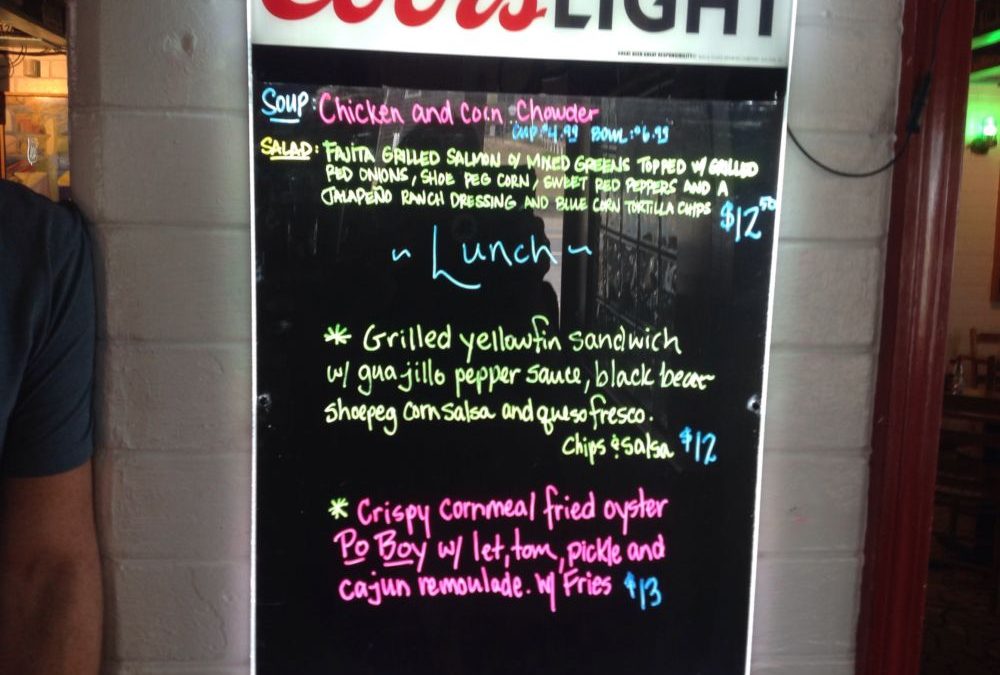 Coors LIGHT
GREAT BEER GREAT RESPONSIBILITY
SOUP: Chicken and Corn Chowder
CUP $4.99 BOWL: $6.99
SALAD: FAJITA GRILLED SALMON O/ MIXED GREENS TOPPED W/ GRILLED
RED ONIONS, SHOE PEG CORN, SWEET RED PEPPERS AND A
JALAPEÑO RANCH DRESSING AND BLUE CORN TORTILLA CHIPS $12.50
~ Lunch ~
* Grilled yellowfin sandwich
w/ guajillo pepper sauce, black bean-
shoepeg corn salsa and queso fresco.
Chips & Salsa $12
* Crispy cornmeal fried oyster
Po Boy w/ let, tom, pickle and
cajun remoulade. w/ Fries $13